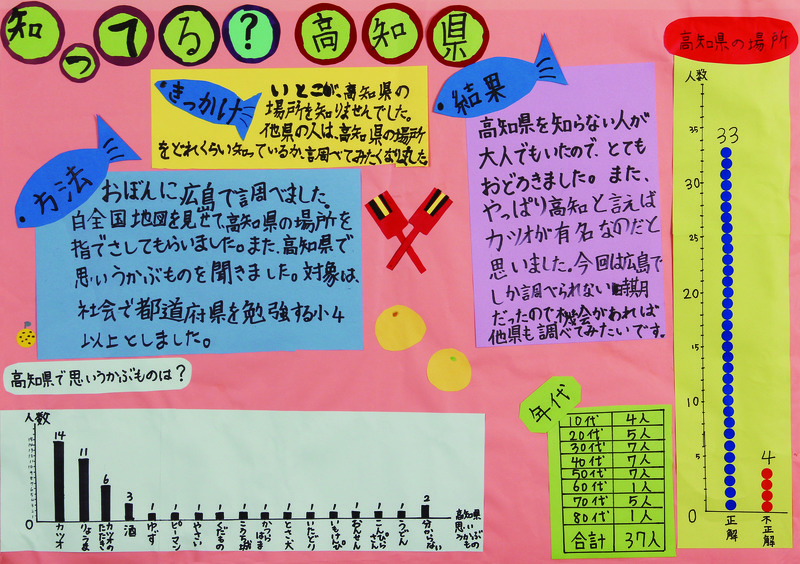 知ってる?高知県
きっかけ
いとこが、高知県の
場所を知りませんでした。
他県の人は、高知県の場所
をどれくらい知っているか、調べてみたくなりました。
方法
おぼんに広島で調べました。
白全国地図を見せて、高知県の場所を
指でさしてもらいました。また、高知県で
思いうかぶものを聞きました。対象は、
社会で都道府県を勉強する小4
以上としました。
結果
高知県を知らない人が
大人でもいたので、とても
おどろきました。また、
やっぱり高知と言えば
カツオが有名なのだと
思いました。今回は広島で
しか調べられない時期
だったので機会があれば
他県も調べてみたいです。
高知県の場所
人数
35
30
25
20
15
10
5
0
33
4
正解
不正解
高知県で思いうかぶものは?
人数
0
14
11
6
3
1
1
1
1
1
1
1
1
1
1
1
1
2
カツオ
りょうま
カツオのたたき
酒
ゆず
ピーマン
やさい
くだもの
こうち城
かつらはま
とさ犬
いたどり
いもけんぴ
おんせん
こんぴらさん
うどん
分からない
高知県
思いうかぶもの
年代
10代 4人
20代 5人
30代 7人
40代 7人
50代 7人
60代 1人
70代 5人
80代 1人
合計 37人